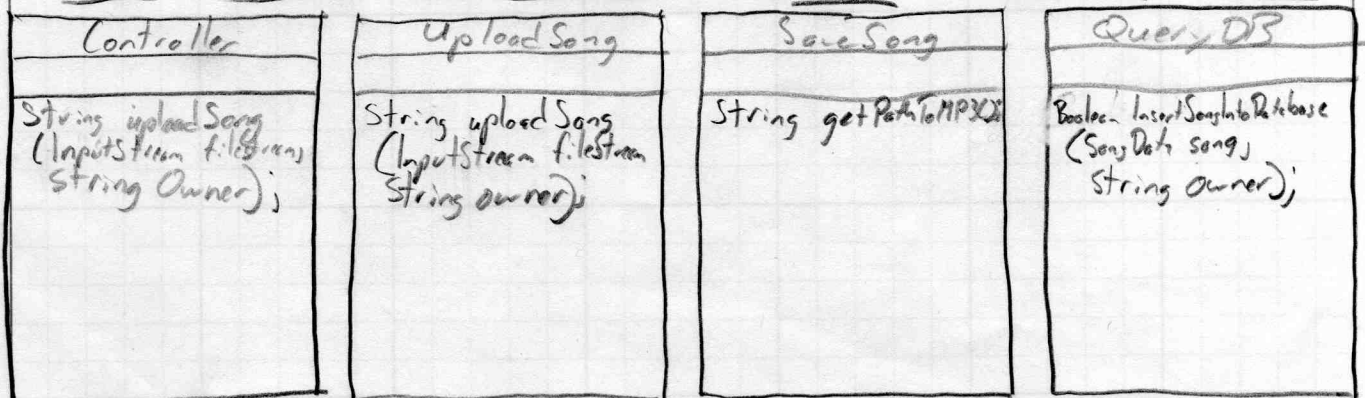 Controller
String uploadSong
(InputStream filestream,
String Owner);
UploadSong
String uploadSong
(InputStream fileStream
String owner);
SaveSong
String getPathToMP3();
QueryDB
Boolean InsertSongIntoDatabase
(SongData song,
String owner);